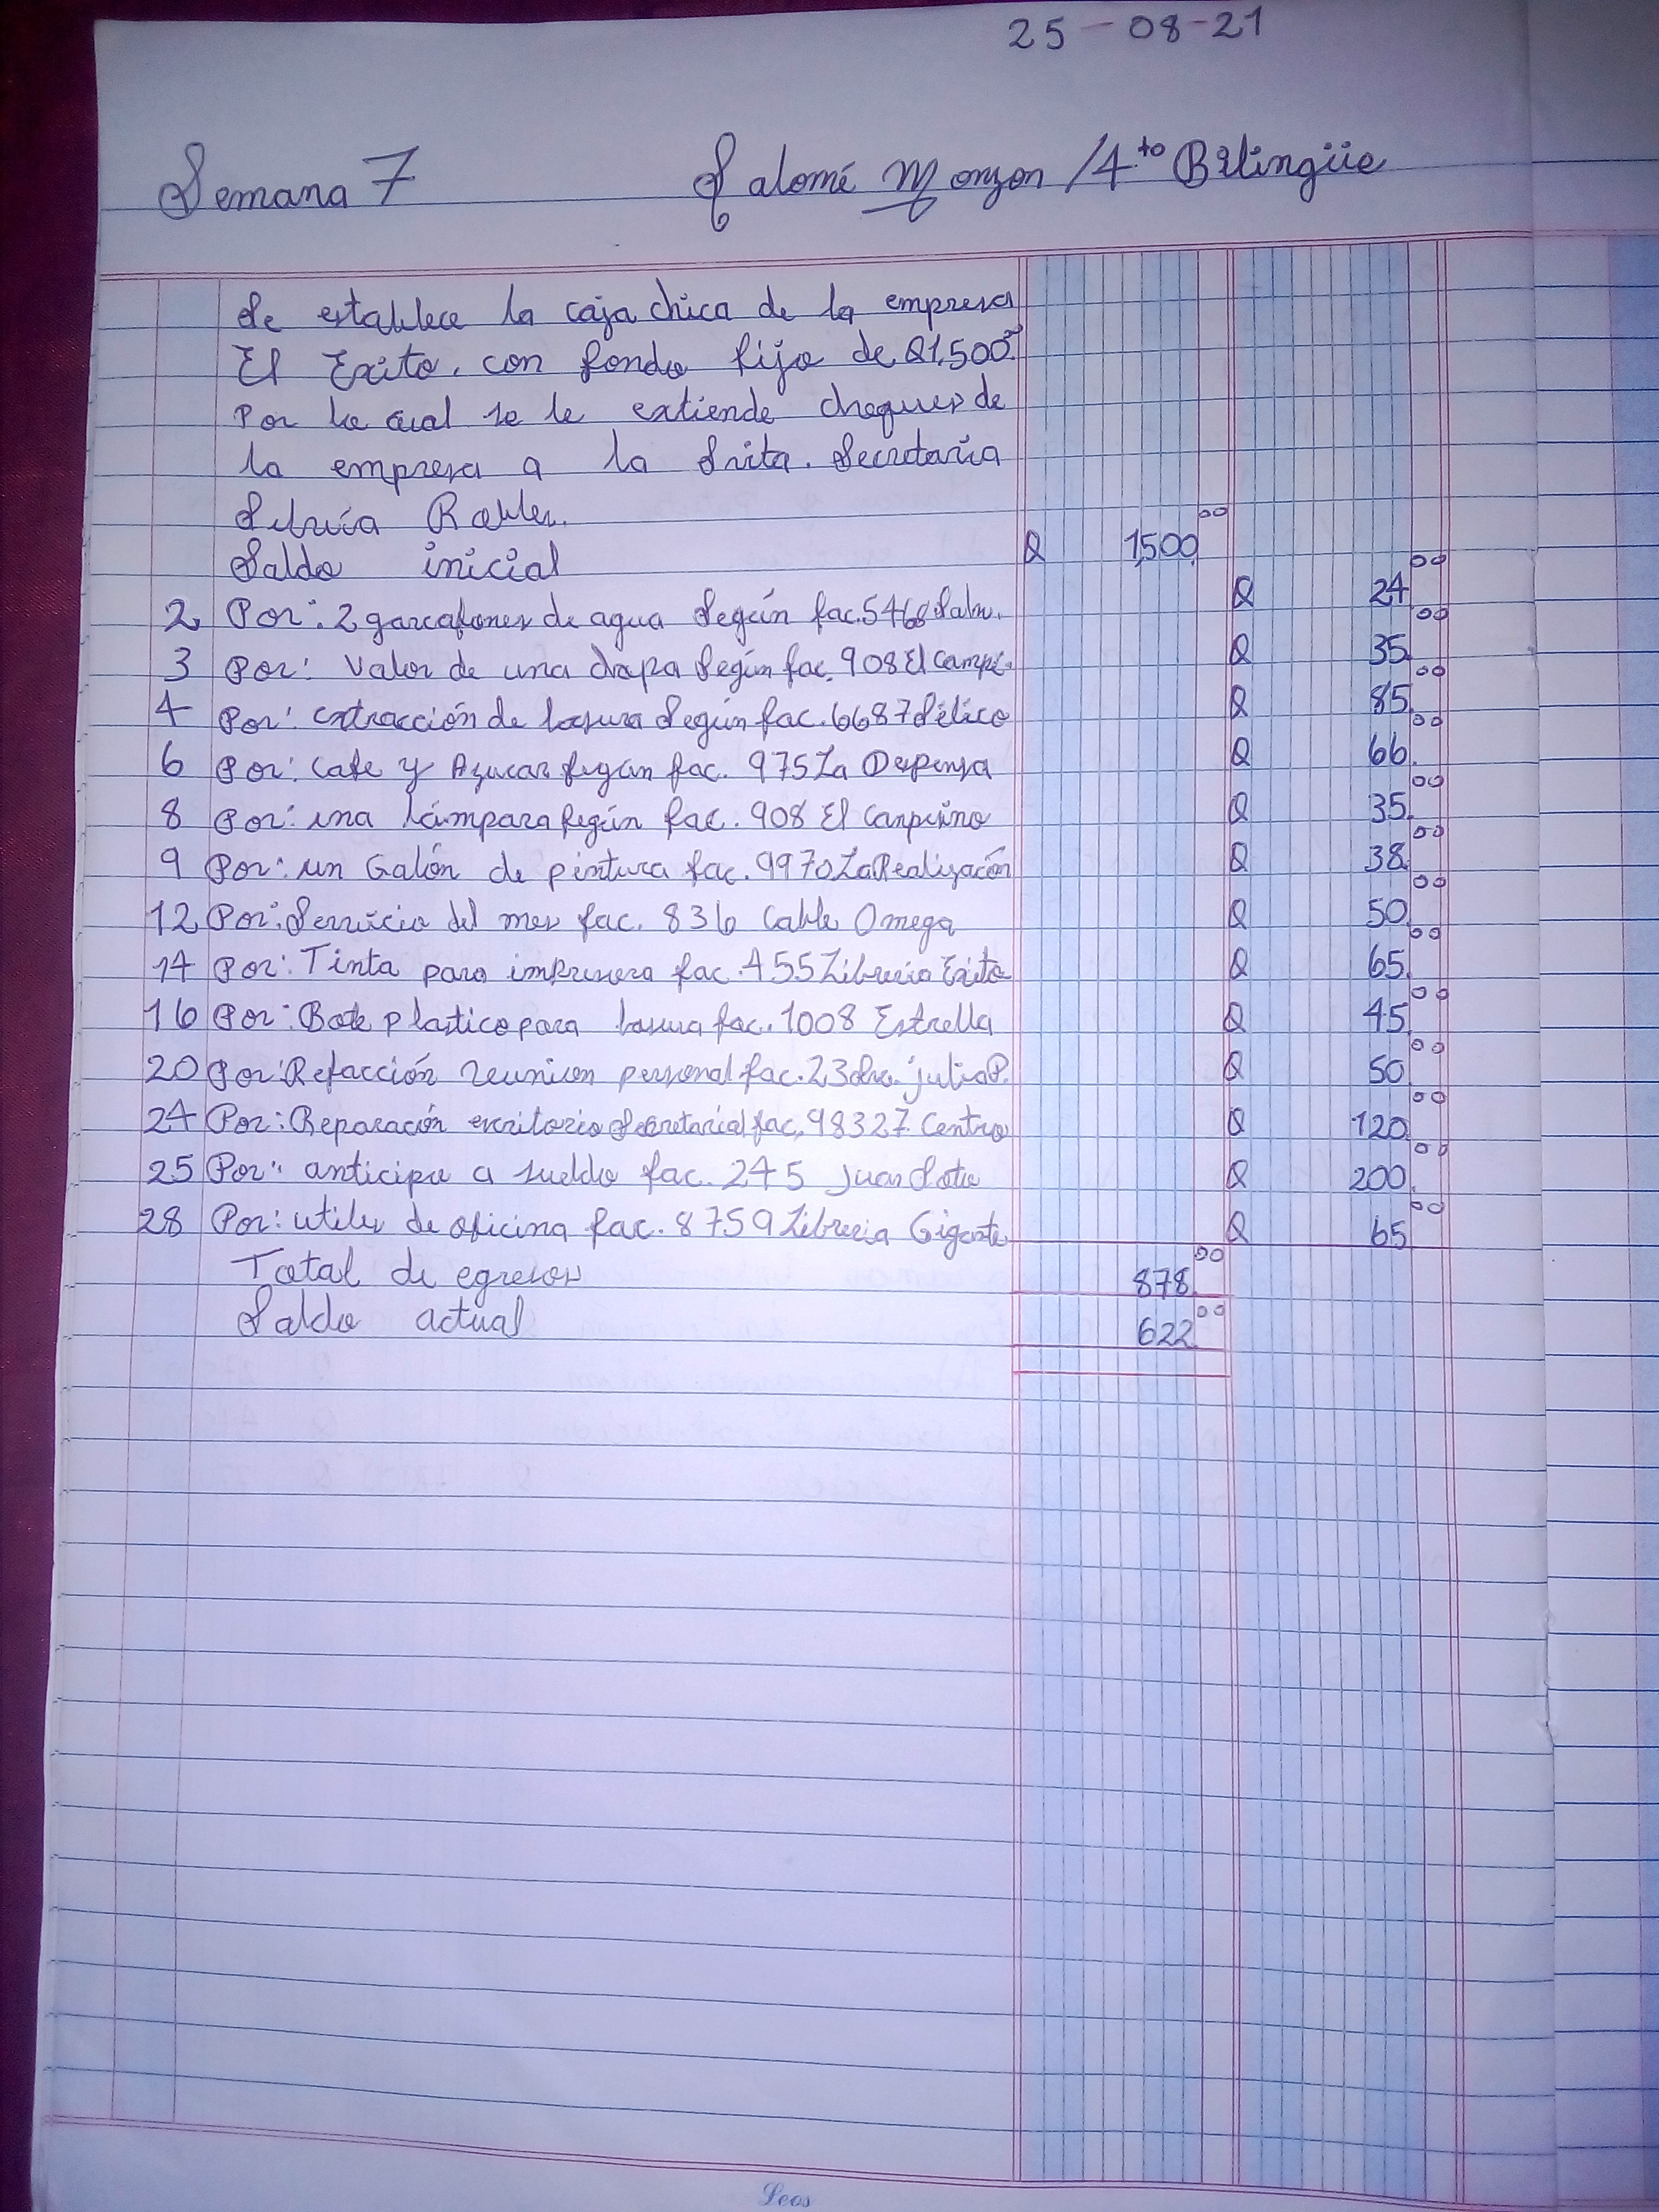 25-08-21
Semana 7 Salomé Monzon /4to Bilingüe
Se establece la caja chica de la empresa
El Exito, con fondo fijo de Q1,500.00
Por lo cual se le extiende cheques de
la empresa a la Srita. Secretaria
Silvia Robles.
Saldo inicial Q 1,500.00
2 Por: 2 garrafones de agua Según fac. 5468 Salv. Q 24.00
3 Por: Valor de una chapa Según fac. 908 El Campe. Q 35.00
4 Por: extracción de basura Según fac. 6687 Q 85.00
6 Por: Cafe y Azucar Según fac. 975 La Despensa Q 66.00
8 Por: una lámpara Según fac. 908 El Q 35.00
9 Por: un Galón de pintura fac. 9970 La Realización Q 38.00
12 Por: Servicio del mes fac. 836 Cable Omega Q 50.00
14 Por: Tinta para impresora fac. 455 Libreria Exito Q 65.00
16 Por: Bote plastico para basura fac. 1008 Estrella Q 45.00
20 Por: Refacción reunion personal fac. 23 julia P. Q 50.00
24 Por: Reparación escritorio Secretarial fac. 98327 Centro Q 120.00
25 Por: anticipo a sueldo fac. 245 Juan Soto Q 200.00
28 Por: utiles de oficina fac. 8759 Libreria Gigante Q 65.00
Total de egresos 878.00
Saldo actual 622.00
Leos